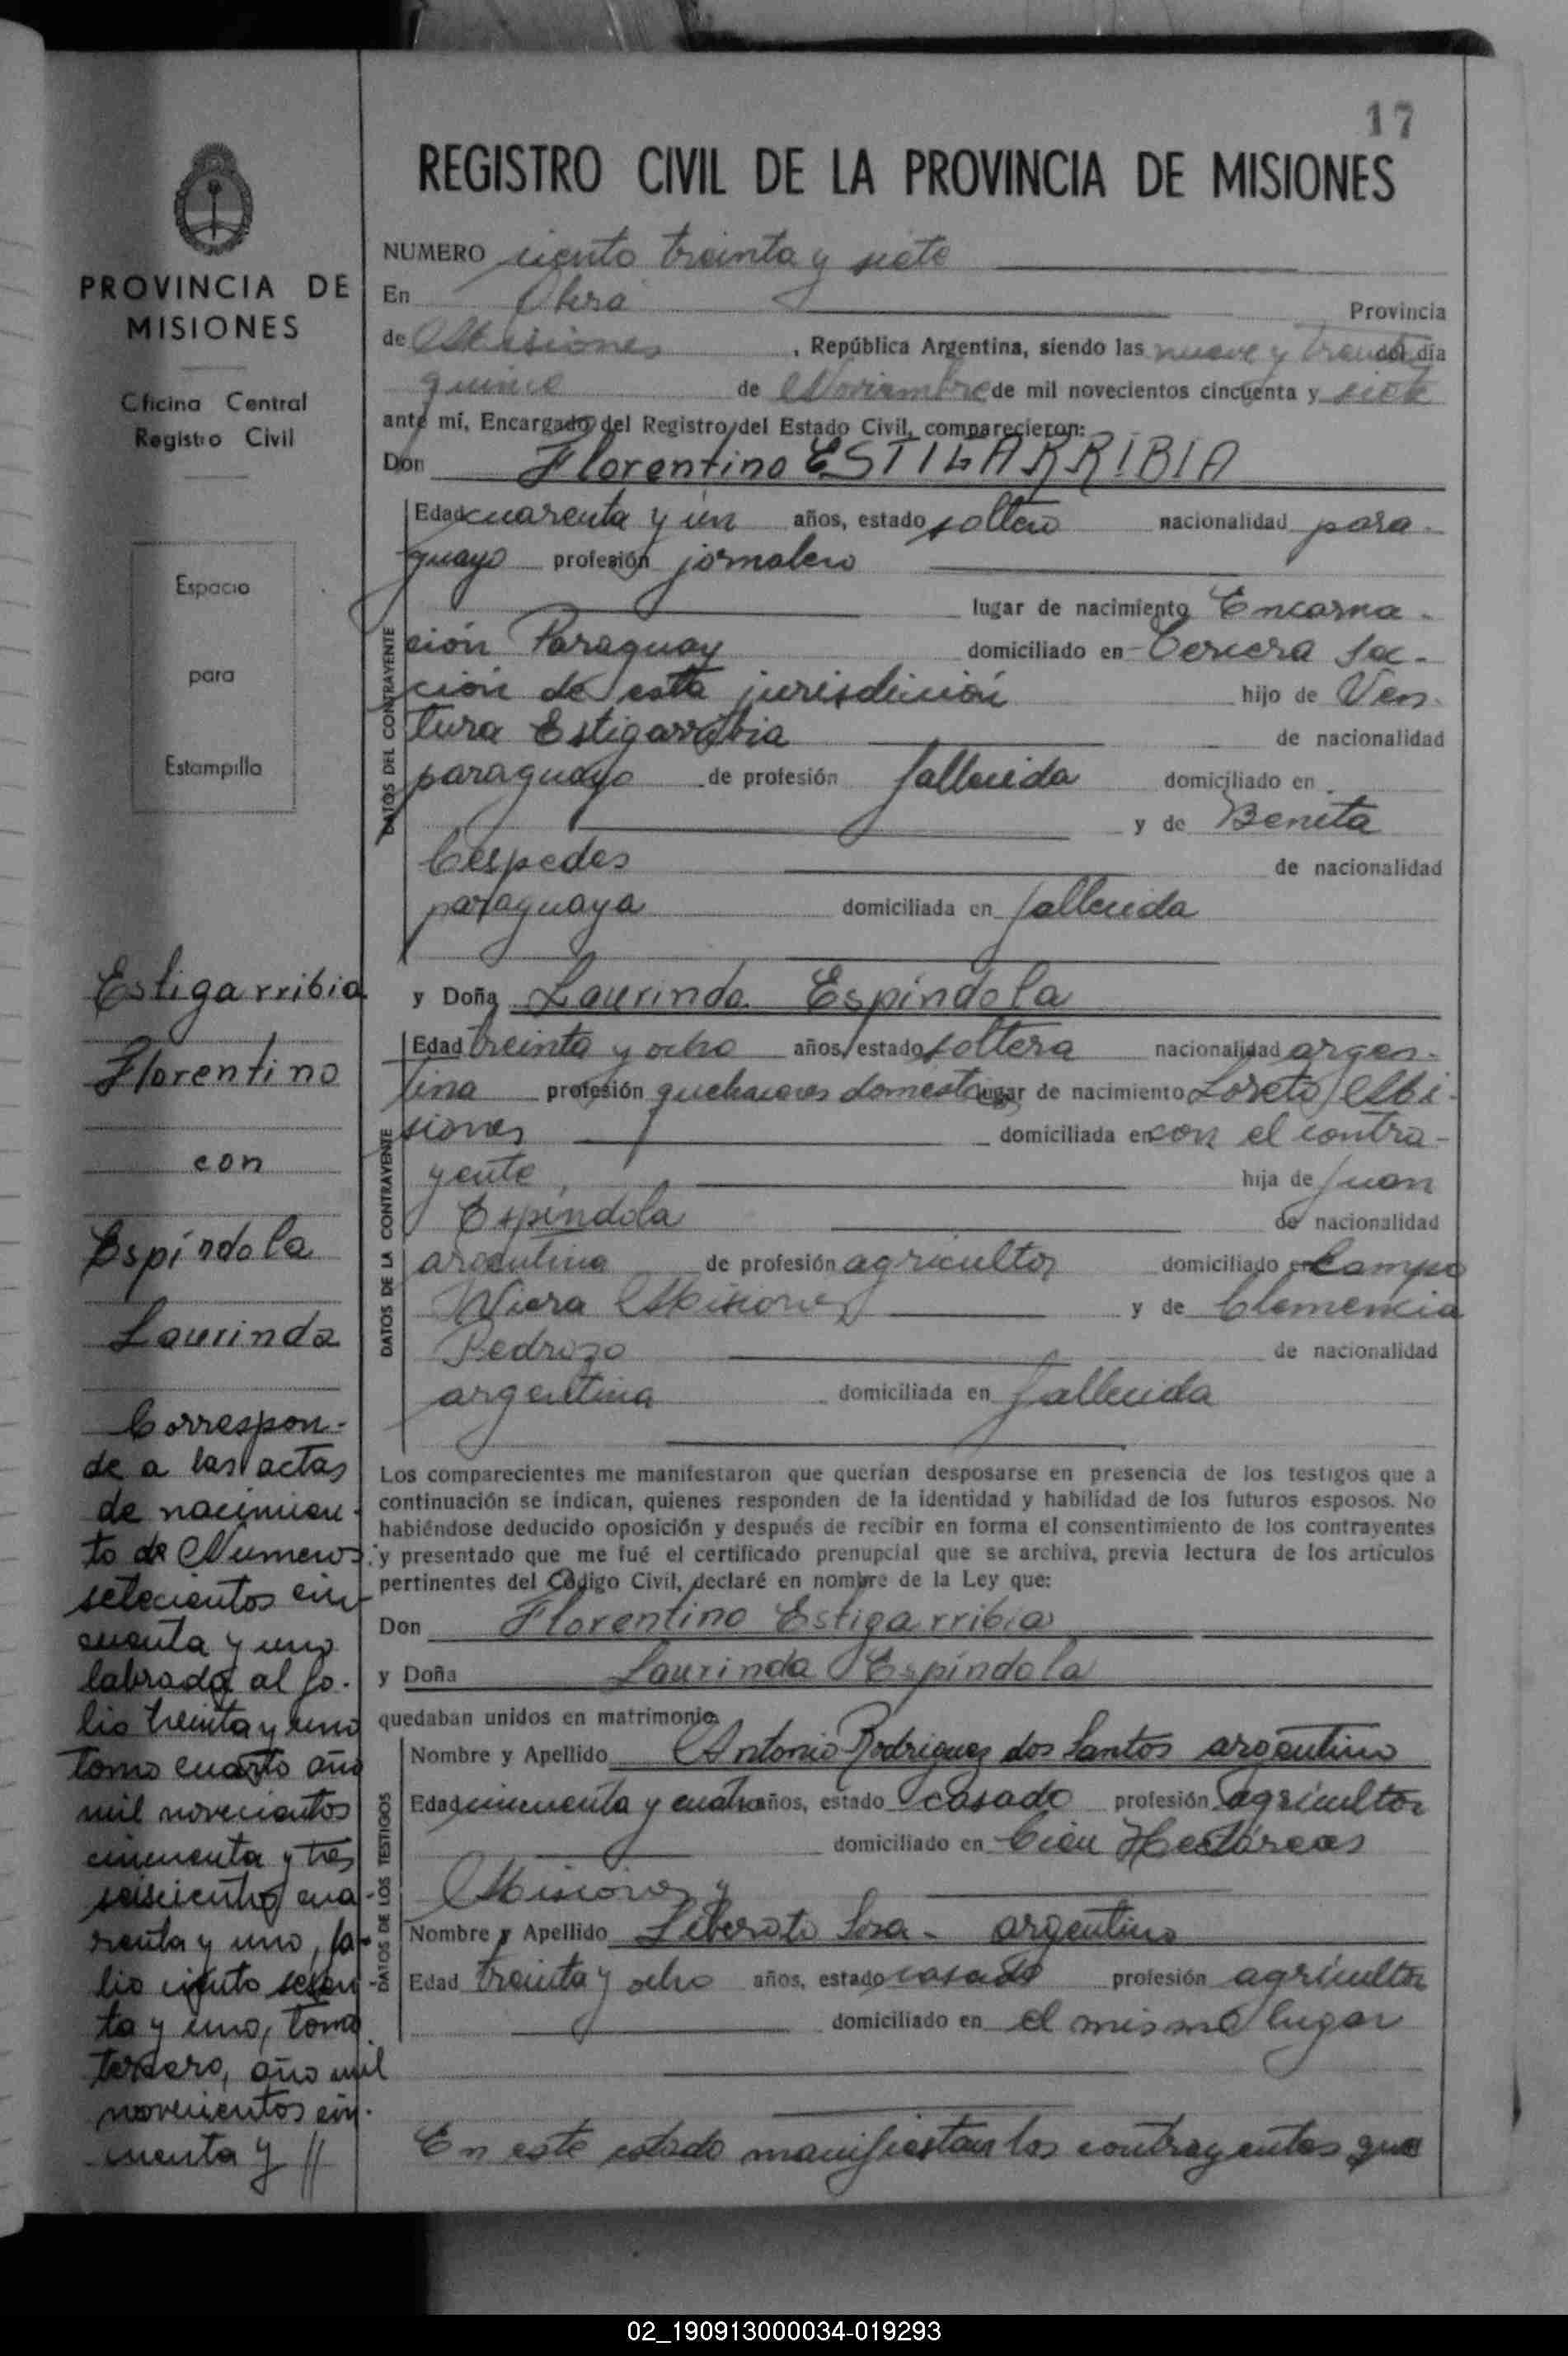 17
REGISTRO CIVIL DE LA PROVINCIA DE MISIONES
PROVINCIA DE
MISIONES
Oficina Central
Registro Civil
Espacio
para
Estampilla
Estigarribia
Florentino
con
Espíndola
Laurinda
Correspon-
de a las actas
de nacimien-
to de Numeros:
setecientos cin-
cuenta y uno
labrada al fo-
lio treinta y uno
tomo cuarto año
mil novecientos
cincuenta y tres
seiscientos cua-
renta y uno, fo-
lio ciento sesen-
ta y uno, tomo
tercero, año mil
novecientos cin-
cuenta y //
NUMERO ciento treinta y siete
En Oberá Provincia
de Misiones, República Argentina, siendo las nueve y treinta del día
quince de Noviembre de mil novecientos cincuenta y siete
ante mí, Encargado del Registro del Estado Civil, comparecieron:
Don Florentino ESTIGARRIBIA
DATOS DEL CONTRAYENTE
Edad cuarenta y un años, estado soltero nacionalidad para-
guayo profesión jornalero
lugar de nacimiento Encarna-
ción Paraguay domiciliado en Tercera Sec-
ción de esta jurisdicción hijo de Ven-
tura Estigarribia de nacionalidad
paraguayo de profesión fallecida domiciliado en
y de Benita
Céspedes de nacionalidad
paraguaya domiciliada en fallecida
y Doña Laurinda Espíndola
DATOS DE LA CONTRAYENTE
Edad treinta y ocho años, estado soltera nacionalidad argen-
tina profesión quehaceres domest. lugar de nacimiento Loreto Mi-
siones domiciliada en con el contra-
yente, hija de Juan
Espíndola de nacionalidad
argentina de profesión agricultor domiciliado en Campo
Wiera Misiones y de Clemencia
Pedrozo de nacionalidad
argentina domiciliada en fallecida
Los comparecientes me manifestaron que querían desposarse en presencia de los testigos que a
continuación se indican, quienes responden de la identidad y habilidad de los futuros esposos. No
habiéndose deducido oposición y después de recibir en forma el consentimiento de los contrayentes
y presentado que me fué el certificado prenupcial que se archiva, previa lectura de los artículos
pertinentes del Código Civil, declaré en nombre de la Ley que:
Don Florentino Estigarribia
y Doña Laurinda Espíndola
quedaban unidos en matrimonio.
DATOS DE LOS TESTIGOS
Nombre y Apellido Antonio Rodriguez dos Santos argentino
Edad cincuenta y cuatro años, estado casado profesión agricultor
domiciliado en Cien Hectáreas
Misiones y
Nombre y Apellido Liberato Sosa - argentino
Edad treinta y ocho años, estado casado profesión agricultor
domiciliado en el mismo lugar
En este estado manifiestan los contrayentes que
02_190913000034-019293